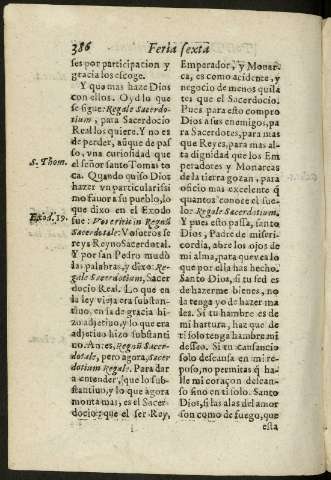 386 Feria sexta
ses por participacion y
gracia los escoge.
Y que mas haze Dios
con ellos. Oyd lo que
se sigue: Regale Sacerdo-
tium, para Sacerdocio
Real los quiere. Y no es
de perder, aũque de pas
so, vna curiosidad que
el señor santo Tomas to
S. Thom.
ca. Quando quiso Dios
hazer vn particularissi
mo fauor a su pueblo, lo
que dixo en el Exodo
Exod. 19.
fue: Vos eritis in Regnũ
Sacerdotale: Vosotros se
reys Reyno Sacerdotal.
Y por san Pedro mudò
las palabras, y dixo: Re-
gale Sacerdotium, Sacer
docio Real. Lo que en
la ley vieja era substan-
tiuo, en la de gracia hi-
zo adjetiuo, y lo que era
adjetiuo hizo substanti
uo. Antes, Regnũ Sacer-
dotale, pero agora, Sacer
dotium Regale. Para dar
a entender, que lo subs-
tantiuo, y lo que agora
monta mas, es el Sacer-
docio: que el ser Rey,
Emperador, y Monar-
ca, es como acidente, y
negocio de menos quila
tes que el Sacerdocio.
Pues para esto compro
Dios a sus enemigos, pa
ra Sacerdotes, para mas
que Reyes, para mas al-
ta dignidad que los Em
peradores y Monarcas
de la tierra gozan, para
oficio mas excelente q̃
quantos conoce el sue-
lo: Regale Sacerdotium.
Y pues esto passa, santo
Dios, Padre de miseri-
cordia, abre los ojos de
mi alma, para que vea lo
que por ella has hecho.
Santo Dios, si tu sed es
de hazerme bienes, no
la tenga yo de hazer ma
les. Si tu hambre es de
mi hartura, haz que de
ti solo tenga hambre mi
desseo. Si tu cansancio
solo descansa en mi re-
poso, no permitas q̃ ha-
lle mi coraçon descan-
so sino en ti solo. Santo
Dios, si las alas del amor
son como de fuego, que
esta